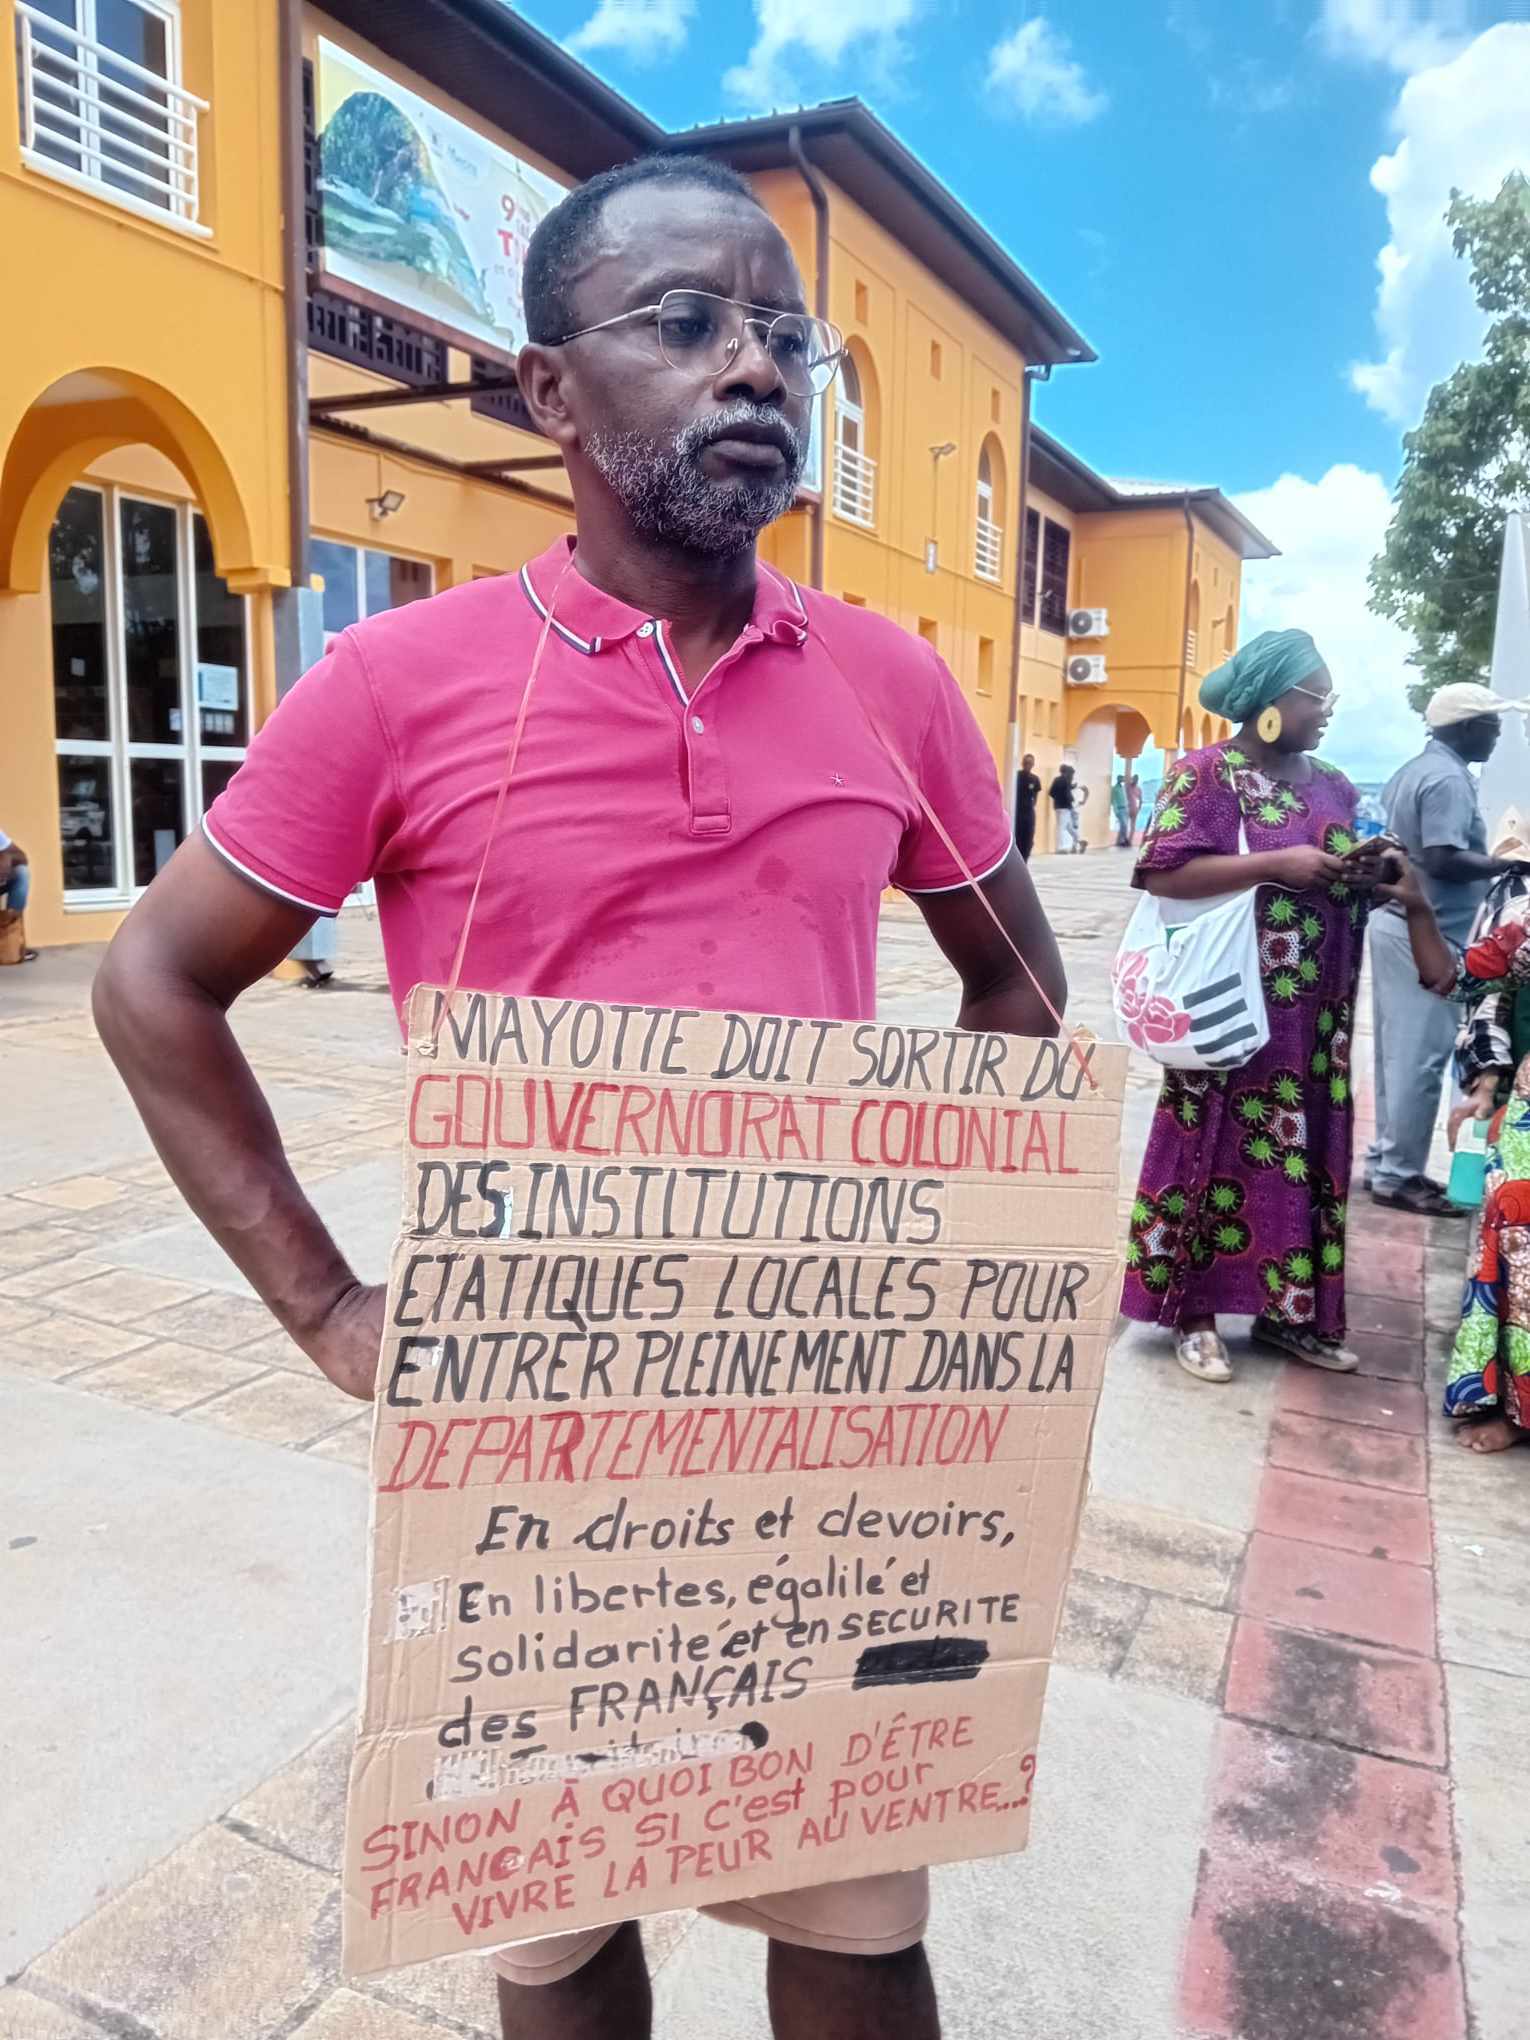 9
MAYOTTE DOIT SORTIR DU
GOUVERNORAT COLONIAL
DES INSTITUTIONS
ETATIQUES LOCALES POUR
ENTRER PLEINEMENT DANS LA
DEPARTEMENTALISATION
En droits et devoirs,
En libertes, égalité et
solidarité et en SECURITE
des FRANÇAIS
SINON À QUOI BON D'ÊTRE
FRANÇAIS SI C'est pour
VIVRE LA PEUR AU VENTRE...?